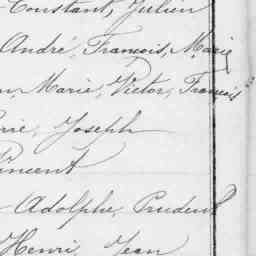 Constant, Julien
André, François, Marie
Marie, Victor, François
Joseph
Vincent
Adolphe, Prudent
Henri, Jean